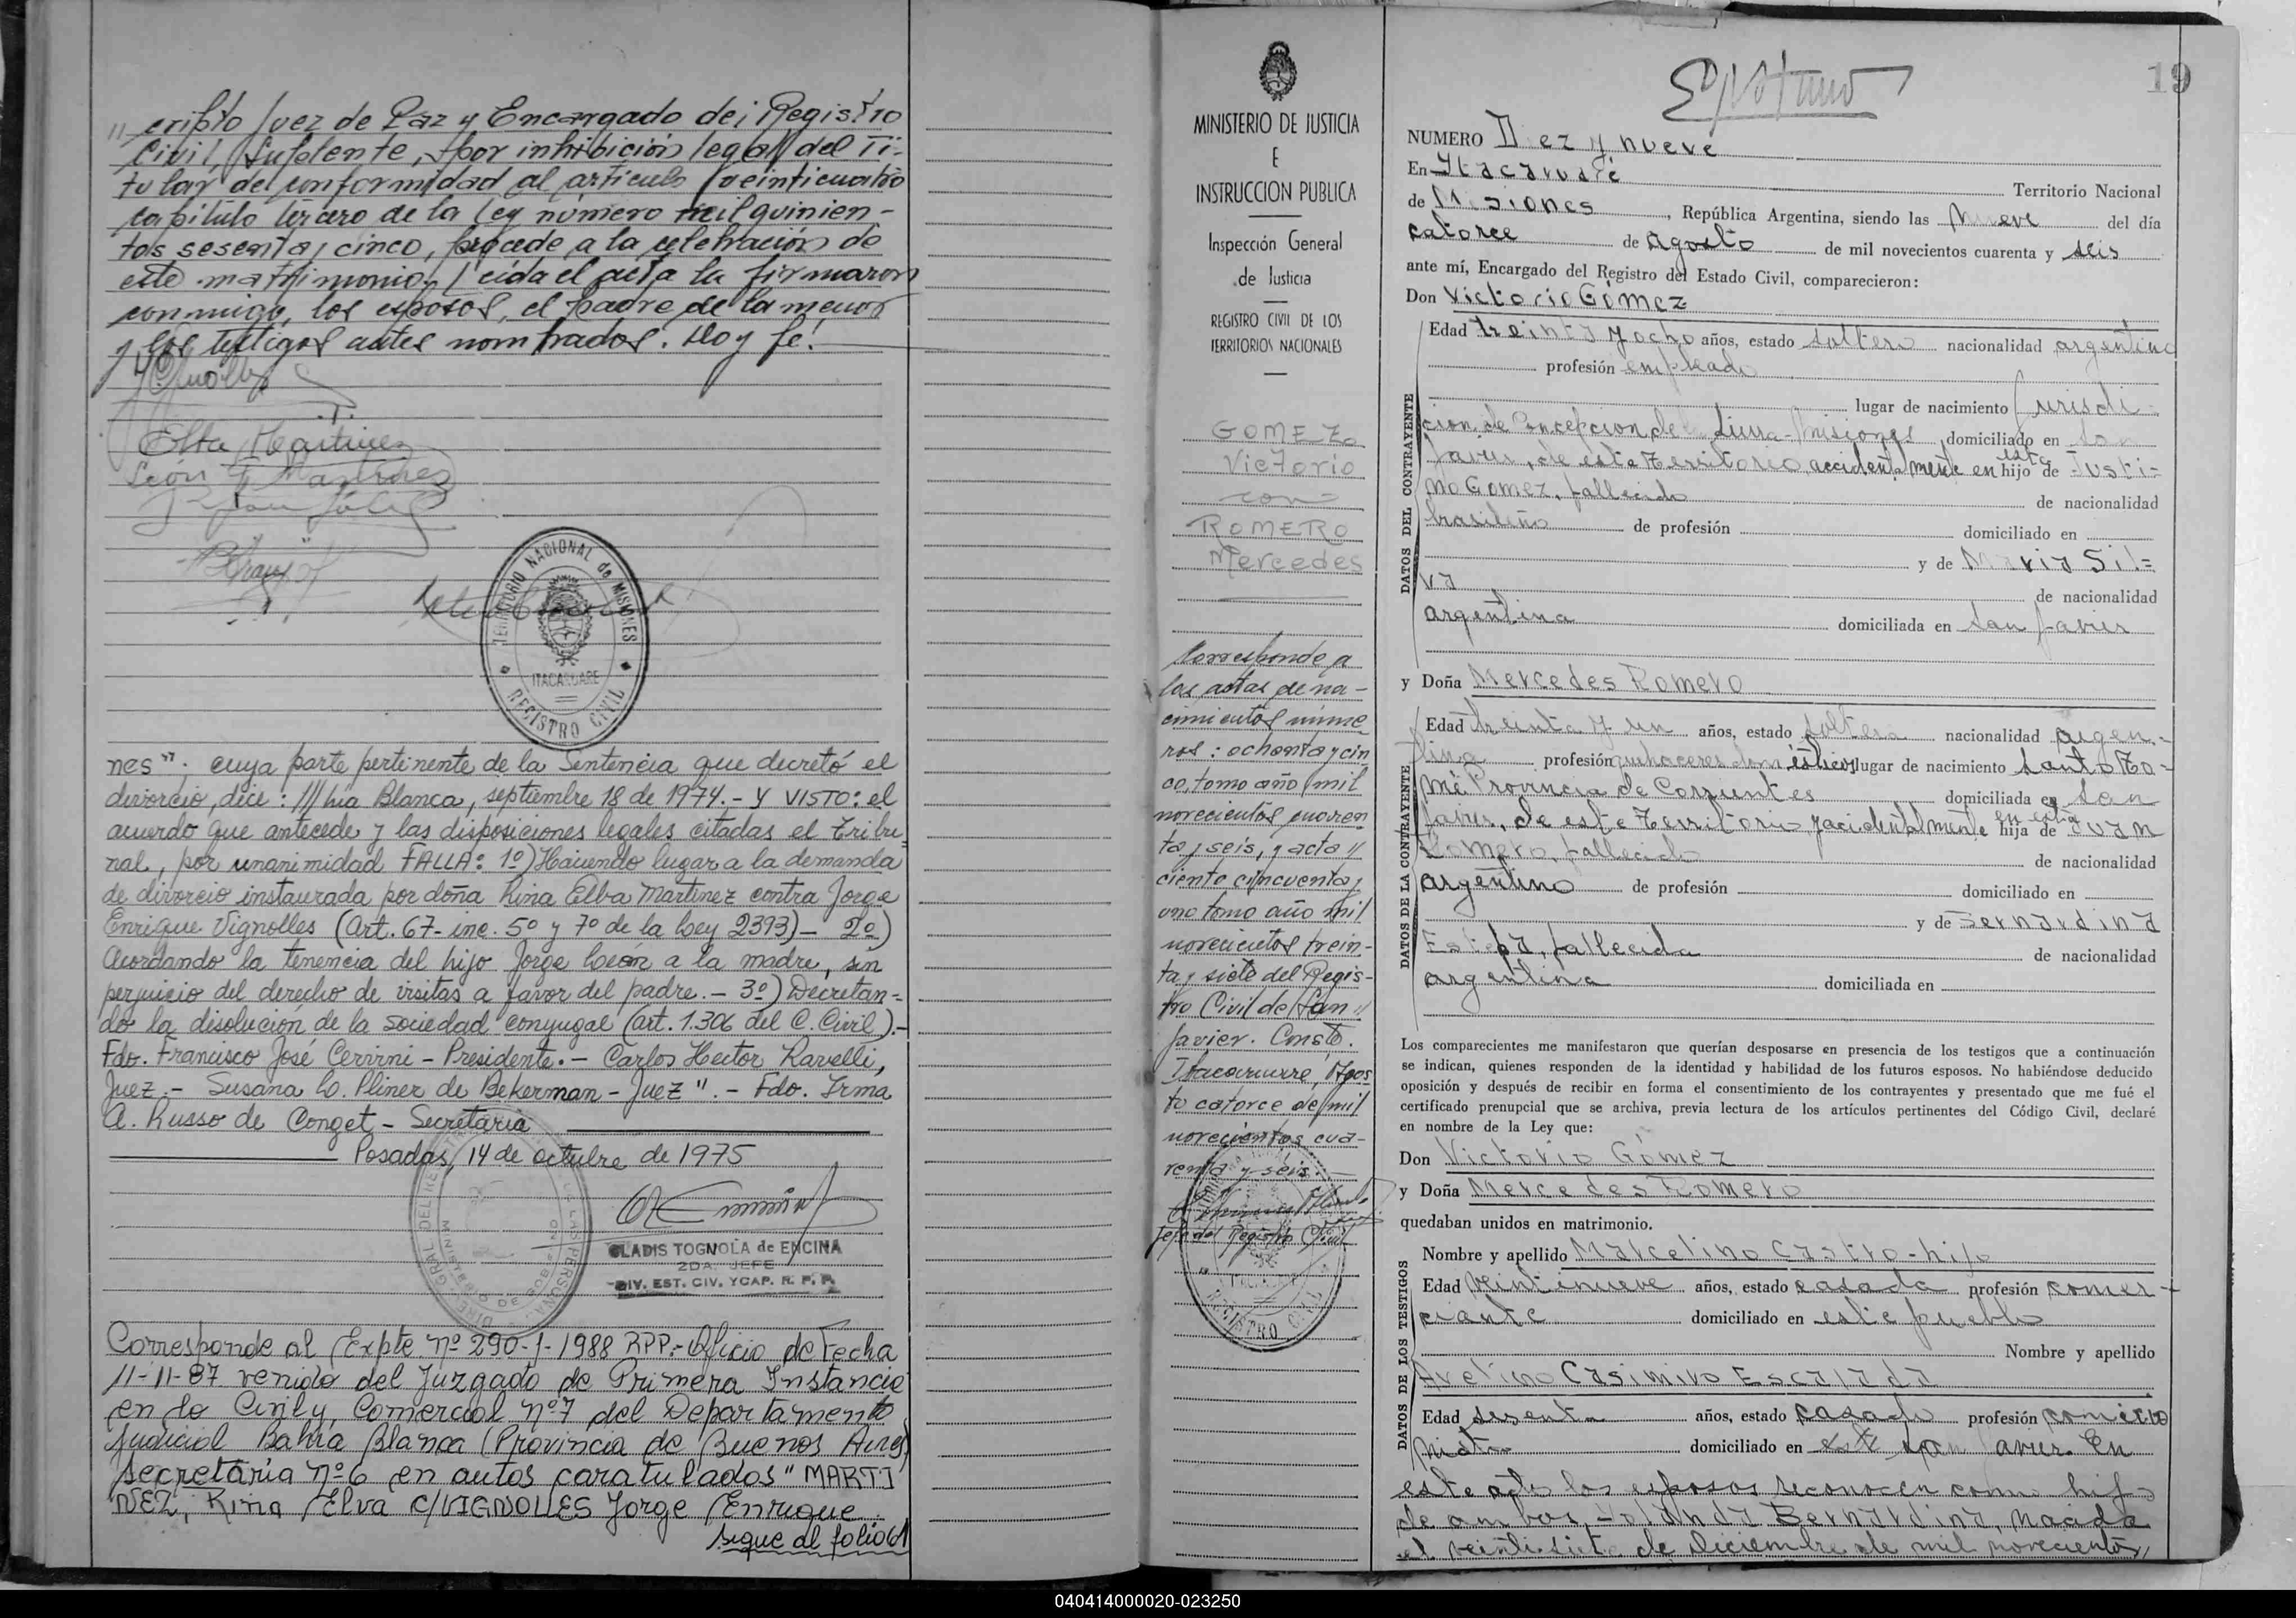 cripto Juez de Paz y Encargado del Registro
Civil, Suplente, por inhibición legal del Ti-
tular de conformidad al artículo veinticuatro
capítulo tercero de la Ley número mil quinien-
tos sesenta y cinco, procede a la celebración de
este matrimonio, leída el acta la firmaron
conmigo, los esposos, el padre de la menor
y los testigos antes nombrados. Doy fé.
Elba Martinez
León F Martinez
TERRITORIO NACIONAL de MISIONES
ITACARUARE
REGISTRO CIVIL
nes"; cuya parte pertinente de la Sentencia que decretó el
divorcio, dice: /// hía Blanca, septiembre 18 de 1974.- Y VISTO: el
acuerdo que antecede y las disposiciones legales citadas el Tribu-
nal, por unanimidad FALLA: 1º) Haciendo lugar a la demanda
de divorcio instaurada por doña Rina Elba Martinez contra Jorge
Enrique Vignolles (Art. 67- inc. 5º y 7º de la Ley 2393)- 2º)
Acordando la tenencia del hijo Jorge León a la madre, sin
perjuicio del derecho de visitas a favor del padre.- 3º) Decretan-
do la disolución de la sociedad conyugal (art. 1.306 del C. Civil).-
Fdo. Francisco José Cervini - Presidente.- Carlos Hector Ravelli,
Juez.- Susana L. Pliner de Bekerman - Juez".- Fdo. Irma
A. Russo de Conget - Secretaria
Posadas, 14 de octubre de 1975
GLADIS TOGNOLA de ENCINA
2DA. JEFE
DIV. EST. CIV. YCAP. R. P. P.
Corresponde al Expte nº 290-J-1988 RPP.- Oficio de Fecha
11-11-87 venido del Juzgado de Primera Instancia
en lo Civil y Comercial nº 7 del Departamento
Judicial Bahía Blanca (Provincia de Buenos Aires)
secretaria nº 6 en autos caratulados "MARTI
NEZ, Rina Elva c/VIGNOLLES Jorge Enrique
sigue al folio 61
MINISTERIO DE JUSTICIA
E
INSTRUCCION PUBLICA
Inspección General
de Justicia
REGISTRO CIVIL DE LOS
TERRITORIOS NACIONALES
GOMEZ
Victorio
con
ROMERO
Mercedes
Corresponde a
las actas de na-
cimientos núme
ros: ochenta y cin
co, tomo año mil
novecientos cuaren
ta y seis, y acta
ciento cincuenta y
uno tomo año mil
novecientos trein-
ta y siete del Regis-
tro Civil de San
Javier. Conste.
Itacaruare, Agos
to catorce de mil
novecientos cua-
renta y seis.
Jefe del Registro Civil
REGISTRO CIVIL
19
NUMERO Diez y nueve
En Itacaruaré Territorio Nacional
de Misiones, República Argentina, siendo las nueve del día
catorce de Agosto de mil novecientos cuarenta y seis
ante mí, Encargado del Registro del Estado Civil, comparecieron:
Don Victorio Gómez
DATOS DEL CONTRAYENTE
Edad treinta y ocho años, estado soltero nacionalidad argentino
profesión empleado
lugar de nacimiento Jurisdi-
cion de Concepcion de la Sierra-Misiones domiciliado en San
Javier, de este Territorio accidentalmente en este hijo de Justi-
no Gomez, fallecido de nacionalidad
brasileño de profesión domiciliado en
y de Maria Sil-
va de nacionalidad
argentina domiciliada en San Javier
y Doña Mercedes Romero
DATOS DE LA CONTRAYENTE
Edad treinta y un años, estado soltera nacionalidad argen-
tina profesión quehaceres domésticos lugar de nacimiento Santo To-
mé Provincia de Corrientes domiciliada en San
Javier, de este Territorio y accidentalmente en este hija de Juan
Romero, fallecido de nacionalidad
argentino de profesión domiciliado en
y de Bernardina
fallecida de nacionalidad
argentina domiciliada en
Los comparecientes me manifestaron que querían desposarse en presencia de los testigos que a continuación
se indican, quienes responden de la identidad y habilidad de los futuros esposos. No habiéndose deducido
oposición y después de recibir en forma el consentimiento de los contrayentes y presentado que me fué el
certificado prenupcial que se archiva, previa lectura de los artículos pertinentes del Código Civil, declaré
en nombre de la Ley que:
Don Victorio Gómez
y Doña Mercedes Romero
quedaban unidos en matrimonio.
DATOS DE LOS TESTIGOS
Nombre y apellido Marcelino Castro-hijo
Edad veintinueve años, estado casado profesión comer-
ciante domiciliado en este pueblo
Nombre y apellido
Avelino Casimiro Escalada
Edad sesenta años, estado casado profesión
domiciliado en San Javier. En
este acto los esposos reconocen como hija
de ambos, Yolanda Bernardina, nacida
el veintisiete de Diciembre de mil novecientos
040414000020-023250